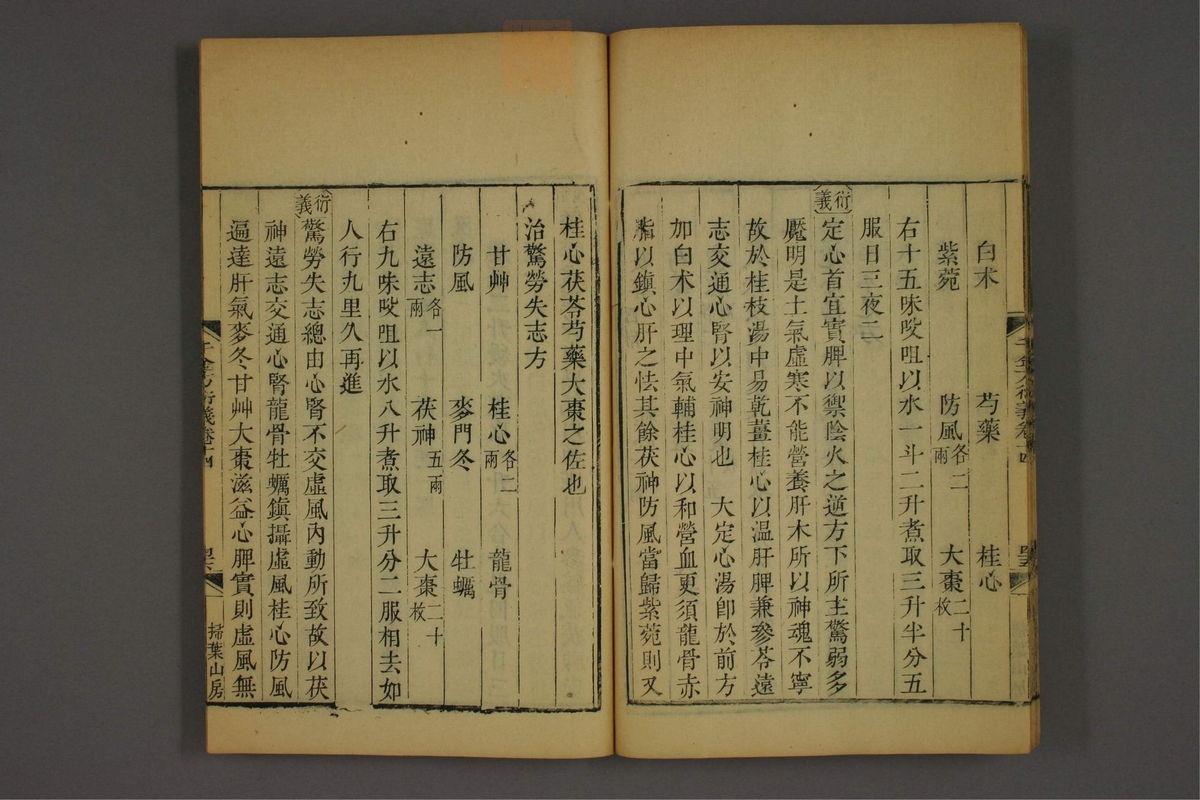 白朮　芍藥　桂心
紫菀　防風各二兩　大棗二十枚
右十五味㕮咀以水一斗二升煮取三升半分五
服日三夜二
衍義 定心首宜實脾以禦陰火之逆方下所主驚弱多
魘明是土氣虛寒不能營養肝木所以神魂不寧
故於桂枝湯中易乾薑桂心以溫肝脾兼參苓遠
志交通心腎以安神明也　大定心湯卽於前方
加白朮以理中氣輔桂心以和營血更須龍骨赤
脂以鎮心肝之怯其餘茯神防風當歸紫菀則又
千金方衍義卷十四
桂心茯苓芍藥大棗之佐也
治驚勞失志方
甘艸　桂心各二兩　龍骨
防風　麥門冬　牡蠣
遠志各一兩　茯神五兩　大棗二十枚
右九味㕮咀以水八升煮取三升分二服相去如
人行九里久再進
衍義 驚勞失志總由心腎不交虛風內動所致故以茯
神遠志交通心腎龍骨牡蠣鎮攝虛風桂心防風
遍達肝氣麥冬甘艸大棗滋益心脾實則虛風無
千金方衍義卷十四
掃葉山房